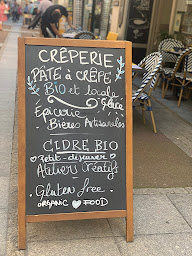 CRÊPERIE
PÂTE à CRÊPE
BIO et locale
Glace
Epicerie
Bières Artisanales
CIDRE BIO
Petit-déjeuner
Atelier Créatifs
Gluten free
ORGANIC FOOD